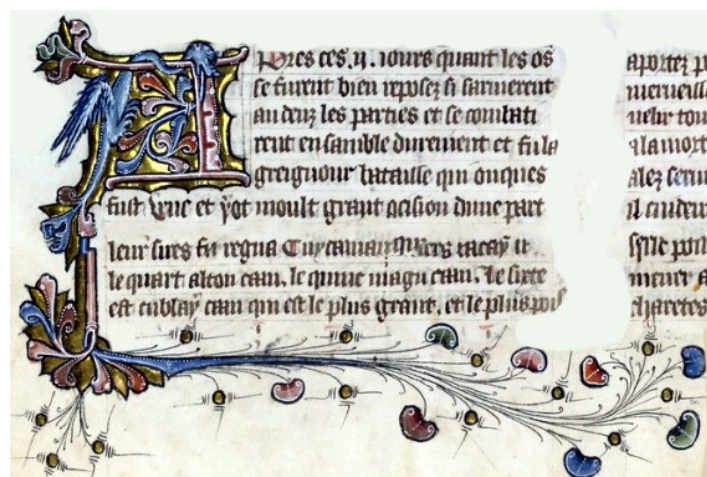 Apres ces .ij. iours quant les os
se furent bien reposez si sarmerent
an deuz les parties et se combati
rent ensamble durement et fu la
greignour bataille qui onques
fust veue et y ot moult grant ocision dune part
leur sires fu regna
le quart alton caan. le quint magu caan. Le sixte
est cublay caan qui est le plus grant. et le plus pois
aportez p
merueille
uenir tou
a la mort
alez seru
il cuider
charetes